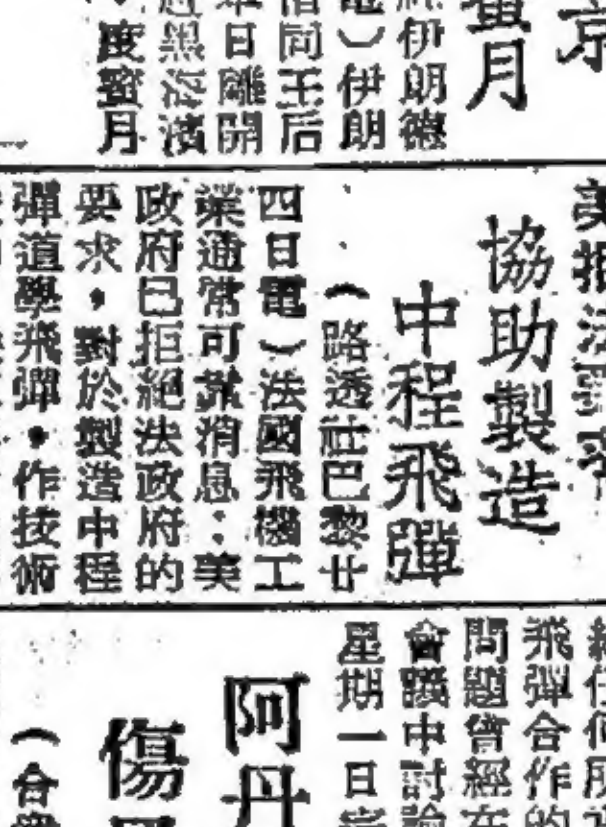 京
蜜月
伊朗德
電）伊朗
偕同王后
日離開
黑海濱
度蜜月
美拒法要求
協助製造
中程飛彈
（路透社巴黎廿
四日電）法國飛機工
業通常可靠消息：美
政府已拒絕法政府的
要求，對於製造中程
彈道學飛彈，作技術
飛彈合作的
問題曾經在
會議中討論
星期一日
阿丹
傷
（合眾